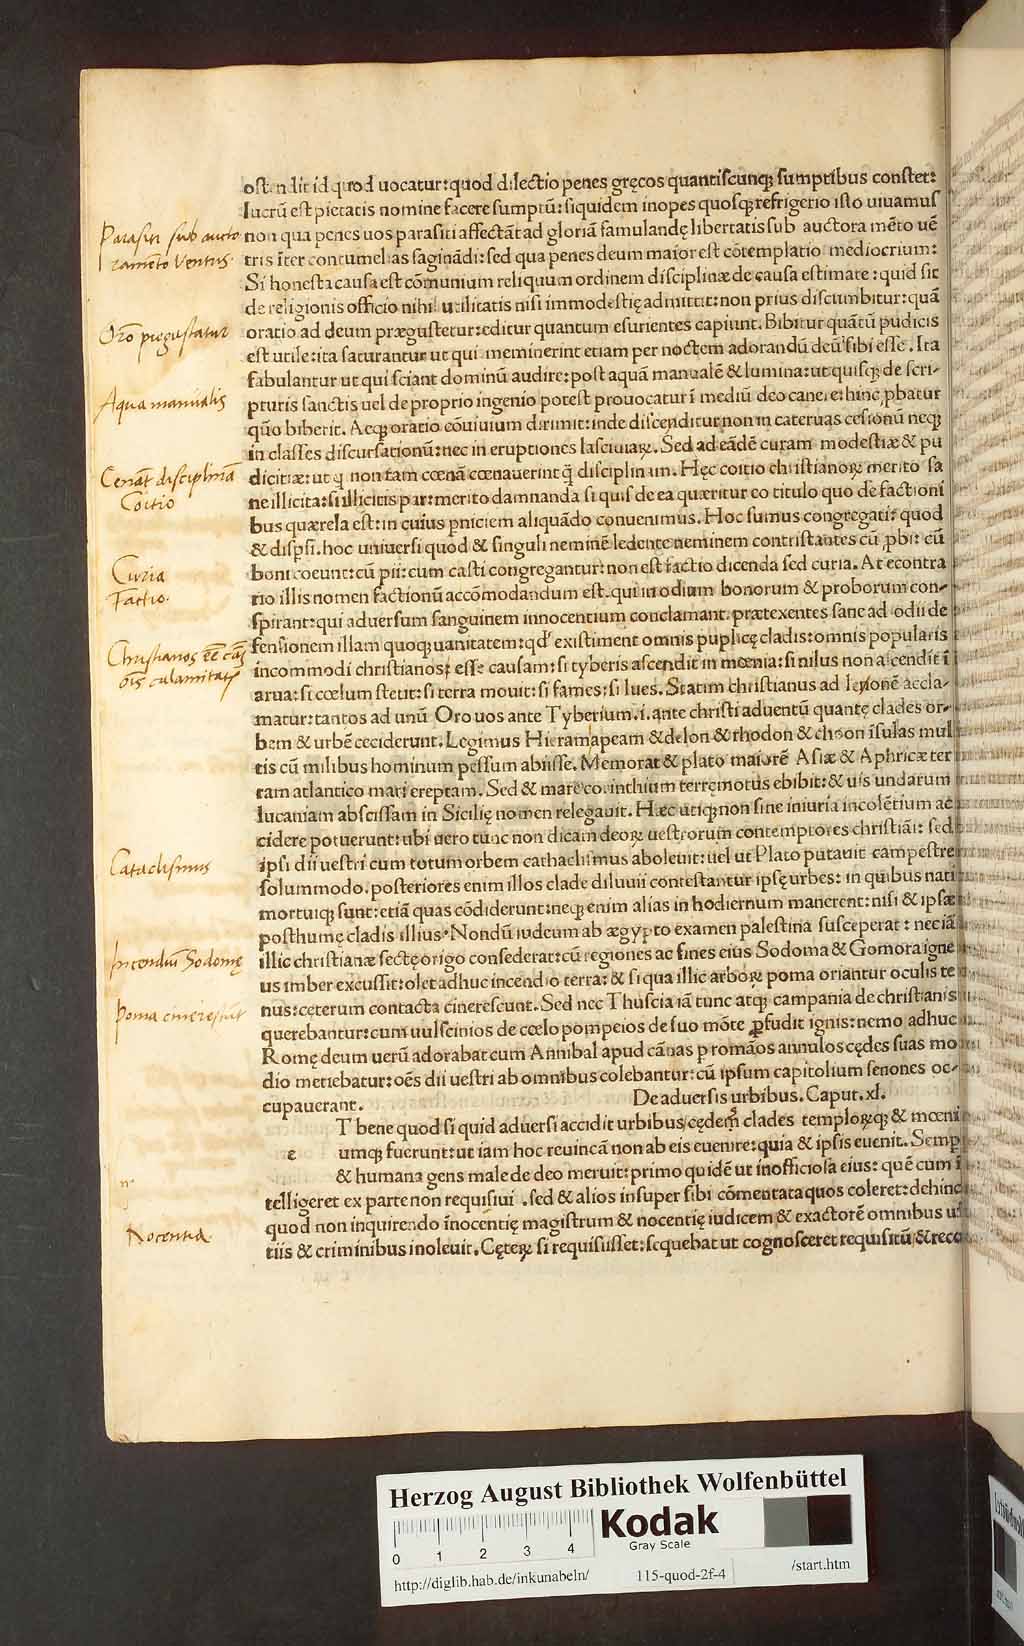 ostendit id quod uocatur: quod dilectio penes gręcos quantiscunq; sumptibus constet:
lucrũ est pietatis nomine facere sumptũ: siquidem inopes quosq; refrigerio isto iuuamus
non qua penes uos parasiti affectãt ad gloriã famulandę libertatis sub auctora mẽto uẽ
tris ĩter contumelias saginãdi: sed qua penes deum maior est cõtemplatio mediocrium:
Si honesta causa est cõmunium reliquum ordinem disciplinæ de causa estimate: quid sit
de religionis officio nihil utilitatis nisi immodestię admittit: non prius discumbitur: quã
oratio ad deum prægustetur: editur quantum esurientes capiunt. Bibitur quãtũ pudicis
est utile: ita saturantur ut qui meminerint etiam per noctem adorandũ deũ sibi esse. Ita
fabulantur ut qui sciant dominũ audire: post aquã manualẽ & lumina: ut quisq; de scri-
pturis sanctis uel de proprio ingenio potest prouocatur ĩ mediũ deo canere: hinc ꝓbatur
quõ biberit. Aeq; oratio cõuiuium dirimit: inde discenditur non in cateruas cesionũ neq;
in classes discursationũ: nec in eruptiones lasciuiaꝝ. Sed ad eãdẽ curam modestiæ & pu
dicitiæ: ut q non tam cœnã cœnauerint q̃ disciplinam. Hęc coitio christianoꝝ merito sa
ne illicita: si illicitis par: merito damnanda si quis de ea quæritur eo titulo quo de factioni
bus quærela est: in cuius pniciem aliquãdo conuenimus. Hoc sumus congregati: quod
& dispsi. hoc uniuersi quod & singuli neminẽ ledente neminem contristantes cũ ꝓbi: cũ
boni coeunt: cũ pii: cum casti congregantur: non est factio dicenda sed curia. At econtra
rio illis nomen factionũ accõmodandum est. qui in odium bonorum & proborum con-
spirant: qui aduersum sanguinem innocentium conclamant. prætexentes sane ad odii de
fensionem illam quoq; uanitatem: qd' existiment omnis puplicę cladis: omnis popularis
incommodi christianos; esse causam: si tyberis ascendit in mœnia: si nilus non ascendit ĩ
arua: si cœlum stetit: si terra mouit: si fames: si lues. Statim christianus ad leonẽ accla-
matur: tantos ad unũ Oro uos ante Tyberium. i. ante christi aduentũ quantę clades or-
bem & urbẽ ceciderunt. Legimus Hieramapeam & delon & rhodon & choon ĩsulas mul
tis cũ milibus hominum pessum abiisse. Memorat & plato maiorẽ Asiæ & Aphricæ ter
ram atlantico mari ereptam. Sed & mare corinthium terręmotus ebibit: & uis undarum
lucaniam abscissam in Sicilię nomen relegauit. Hæc utiq; non sine iniuria incolẽtium ac
cidere potuerunt: ubi uero tunc non dicam deoꝝ uestrorum contemptores christiãi: sed
ipsi dii uestri cum totum orbem cathaclismus aboleuit: uel ut Plato putauit campestre
solummodo. posteriores enim illos clade diluuii contestantur ipsę urbes: in quibus nati
mortuiq; sunt: etiã quas cõdiderunt: neq; enim alias in hodiernum manerent: nisi & ipsæ
posthumę cladis illius. Nondũ iudeum ab ægypto examen palestina susceperat: nec iã
illic christianæ sectę origo consederat: cũ regiones ac fines eius Sodoma & Gomora igne
us imber excussit: olet adhuc incendio terra: & si qua illic arboꝝ poma oriantur oculis te
nus: cęterum contacta cinerescunt. Sed nec Thuscia iã tunc atq; campania de christianis
querebantur: cum uulscinios de cœlo pompeios de suo mõte ꝓfudit ignis: nemo adhuc
Romę deum uerũ adorabat cum Annibal apud cãnas p romãos annulos cędes suas mo
dio metiebatur: oẽs dii uestri ab omnibus colebantur: cũ ipsum capitolium senones oc-
cupauerant. De aduersis urbibus. Caput. xl.
T bene quod si quid aduersi accidit urbibus cędem clades temploꝝq; & mœni
e umq; fuerunt: ut iam hoc reuincã non ab eis euenire: quia & ipsis euenit. Semp
& humana gens male de deo meruit: primo quidẽ ut inofficiosa eius: quẽ cum ĩ
telligeret ex parte non requisiui . sed & alios insuper sibi cõmentata quos coleret: dehinc
quod non inquirendo ĩnocentię magistrum & nocentię iudicem & exactorẽ omnibus ui
tiis & criminibus inoleuit. Cęteꝝ si requisisset: sequebat ut cognosceret requisitũ & reco
Parasiti sub aucto
ramẽto Ventris.
Orõ pregustatur
Aqua manualis
Cenãt disciplinã
Coitio
Curia
Factio.
Christianos eẽ cãs
ois calamitatis
Cataclismus
Incendiũ Sodomę
Poma cinerescũt
n.
Nocentia.
Herzog August Bibliothek Wolfenbüttel
0 1 2 3 4
Kodak
Gray Scale
http://diglib.hab.de/inkunabeln/ 115-quod-2f-4 /start.htm